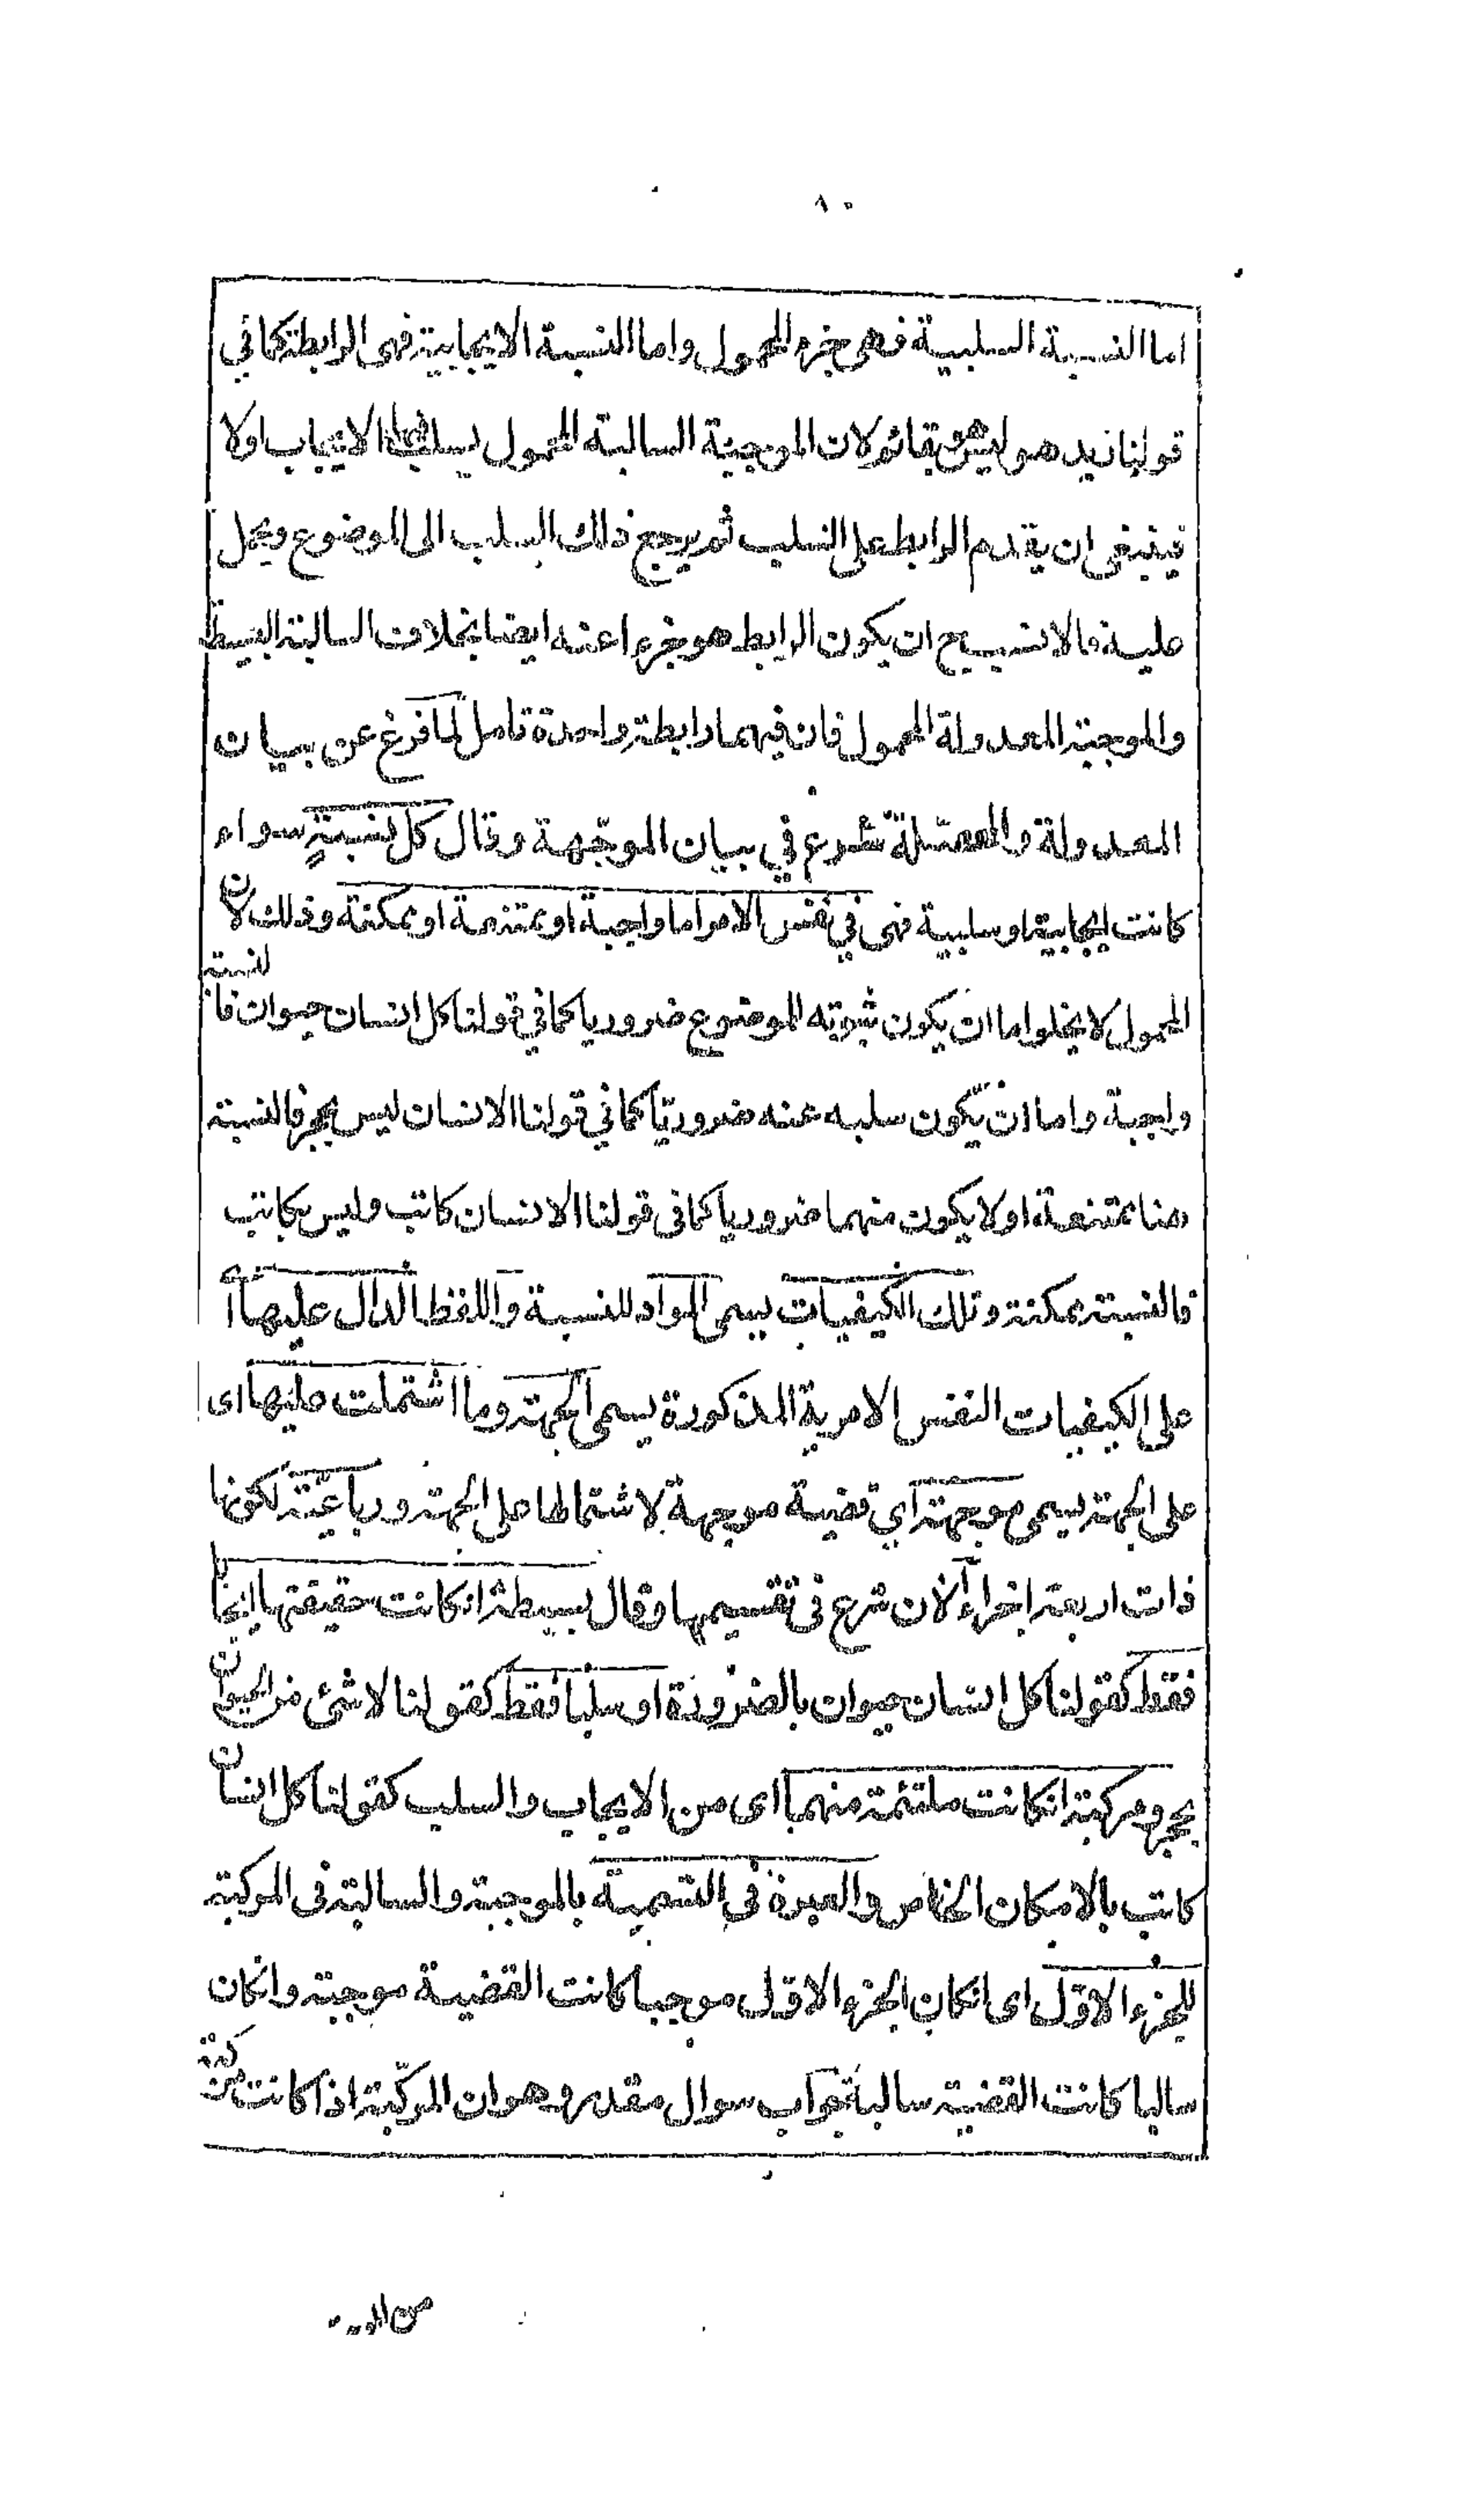 ٨٠
اما النسبة السلبية فهي جزء المحمول واما النسبة الايجابية فهي الرابطة كما في
قولنا زيد هو ليس بقائم لان الموجبة السالبة المحمول يسلب فيها الايجاب اولا
فينبغي ان يقدم الرابط على السلب ثم يرجع ذلك السلب الى الموضوع ويحمل
عليه فالانسب ان يكون الرابط هو جزءا عنه ايضا بخلاف السالبة البسيطة
والموجبة المعدولة المحمول فان فيهما رابطة واحدة تامل لما فرغ عن بيان
المعدولة والمحصلة شرع في بيان الموجّهة وقال كل نسبةٍ سواء
كانت ايجابية او سلبية فهي في نفس الامر اما واجبة او ممتنعة او ممكنة وذلك لان
المحمول لا يخلوا اما ان يكون ثبوته للموضوع ضروريا كما في قولنا كل انسان حيوان فالنسبة
واجبة واما ان يكون سلبه عنه ضروريّا كما في قولنا الانسان ليس بحجر فالنسبة
هنا ممتنعة او لا يكون منهما ضروريا كما في قولنا الانسان كاتب وليس بكاتب
فالنسبة ممكنة وتلك الكيفيات يسمى المواد للنسبة واللفظ الدال عليها اى
على الكيفيات النفس الامرية المذكورة يسمى الجهة وما اشتملت عليها اى
على الجهة يسمى موجهة اي قضية موجهة لاشتمالها على الجهة ورباعيّة لكونها
ذات اربعة اجزاء الآن شرع في تقسيمها وقال بسيطة انكانت حقيقتها ايجابا
فقط كقولنا كل انسان حيوان بالضرورة او سلبا فقط كقولنا لا شئ من الحيوان
بحجر ومركبة انكانت ملتئمة منهما اى من الايجاب والسلب كقولنا كل انسان
كاتب بالامكان الخاص والعبرة في التسمية بالموجبة والسالبة في المركبة
للجزء الاوّل اى انكان الجزء الاوّل موجبا كانت القضية موجبة وانكان
سالبا كانت القضية سالبة جواب سوال مقدر وهو ان المركّبة اذا كانت مركبة